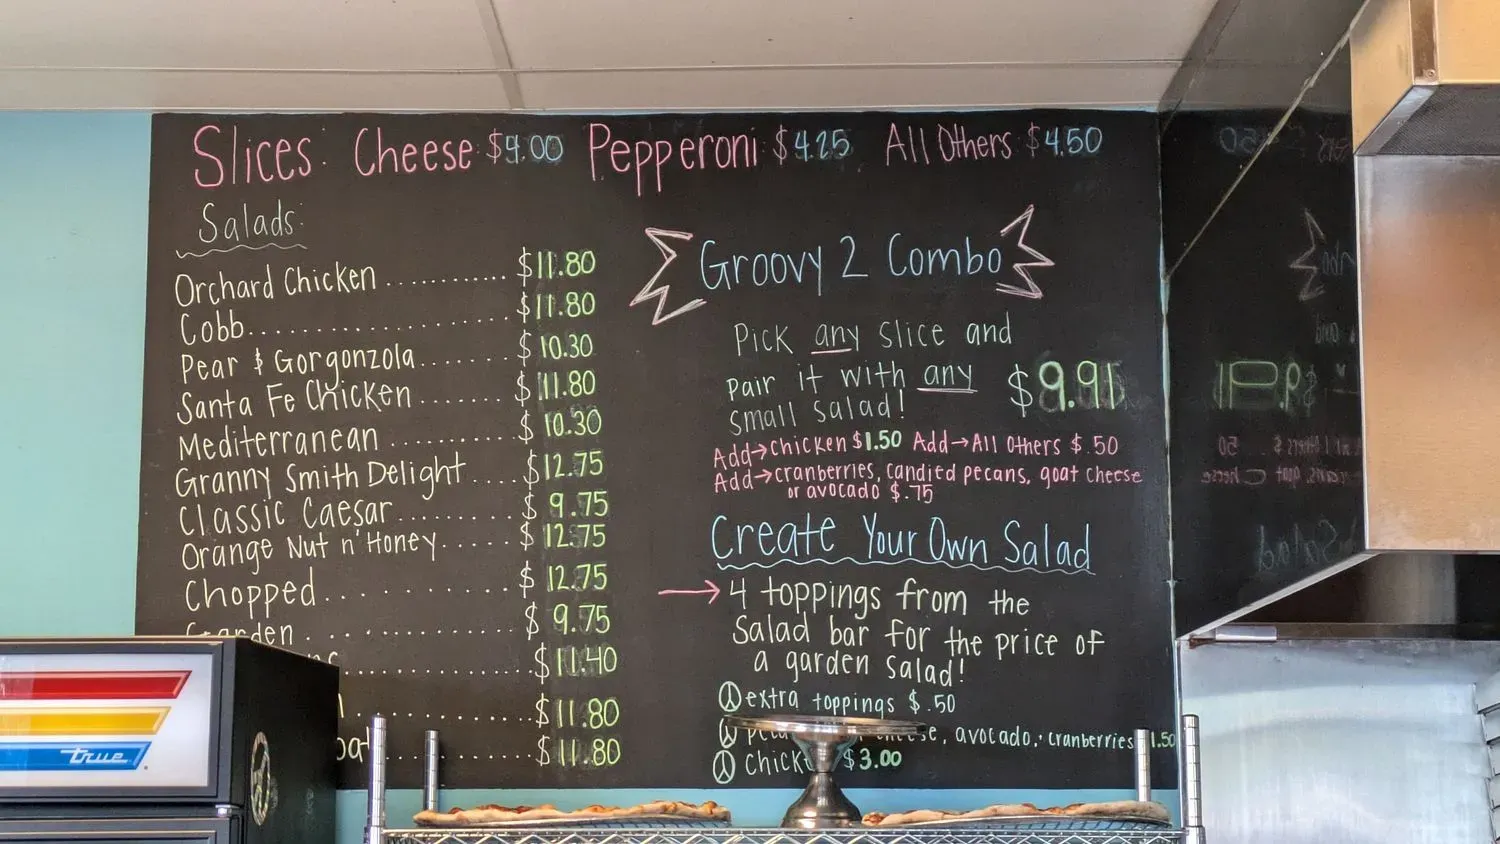 Slices: Cheese $4.00 Pepperoni $4.25 All Others $4.50
Salads:
Orchard Chicken ........... $11.80
Cobb....................... $11.80
Pear & Gorgonzola....... $10.30
Santa Fe Chicken ....... $11.80
Mediterranean .......... $10.30
Granny Smith Delight .... $12.75
Classic Caesar .......... $9.75
Orange Nut n' Honey..... $12.75
Chopped............... $12.75
Garden ............... $9.75
$11.40
$11.80
$11.80
Groovy 2 Combo
Pick any slice and
pair it with any $9.91
small salad!
Add→chicken $1.50 Add→All Others $.50
Add→cranberries, candied pecans, goat cheese
or avocado $.75
Create Your Own Salad
→ 4 toppings from the
Salad bar for the price of
a garden salad!
extra toppings $.50
avocado, cranberries 1.50
chicken $3.00
true